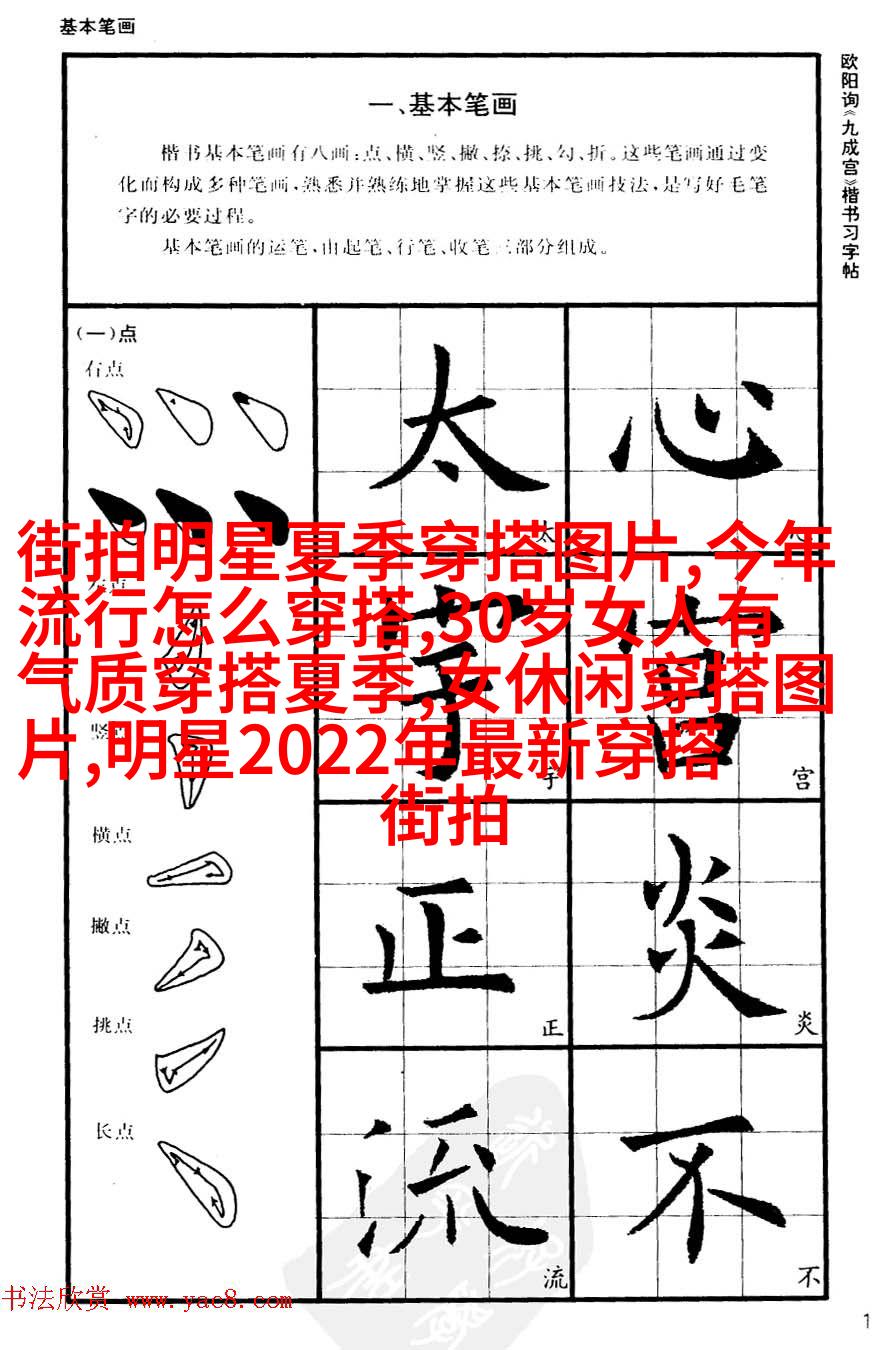 基本笔画
欧阳询《九成宫》楷书习字帖
一、基本笔画
楷书基本笔画有八画：点、横、竖、撇、捺、挑、勾、折。这些笔画通过变
化而构成多种笔画，熟悉并熟练地掌握这些基本笔画技法，是写好毛笔
字的必要过程。
基本笔画的运笔，由起笔、行笔、收笔三部分组成。
(一)点
右点
太
心
太
街拍明星夏季穿搭图片,今年
流行怎么穿搭,30岁女人有
气质穿搭夏季,女休闲穿搭图
片,明星2022年最新穿搭
街拍
竖
字
宫
字
宫
横点
正
炎
正
炎
撇点
挑点
长点
流
不
流
不
书法欣赏 www.yac8.com
1